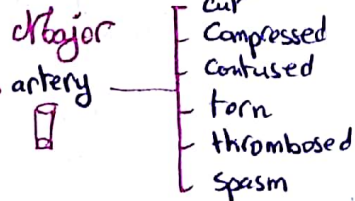 Major
artery
cut
Compressed
Contused
torn
thrombosed
spasm